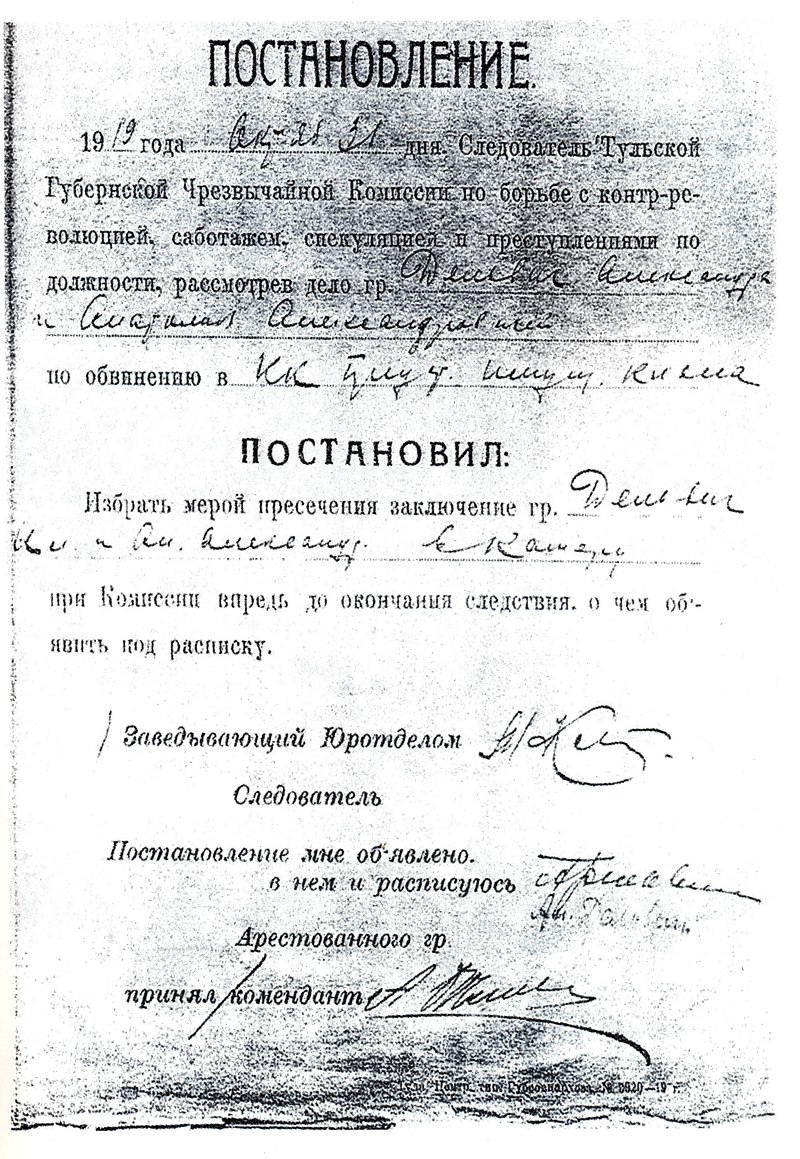 ПОСТАНОВЛЕНИЕ.
1919 года 31 дня. Следователь Тульской
Губернской Чрезвычайной Комиссии по борьбе с контр-ре-
волюцией, саботажем, спекуляцией и преступлениями по
должности, рассмотрев дело гр. Дельвиг Александра
и Анатолия Александровичей
по обвинению в КК
ПОСТАНОВИЛ:
Избрать мерой пресечения заключение гр. Дельвиг
и Ан. Александр. в камеру
при Комиссии впредь до окончания следствия, о чем об'-
явить под расписку.
Заведывающий Юротделом
Следователь
Постановление мне об'явлено.
в нем и расписуюсь
Ан. Дельвиг
Арестованного гр.
принял комендант